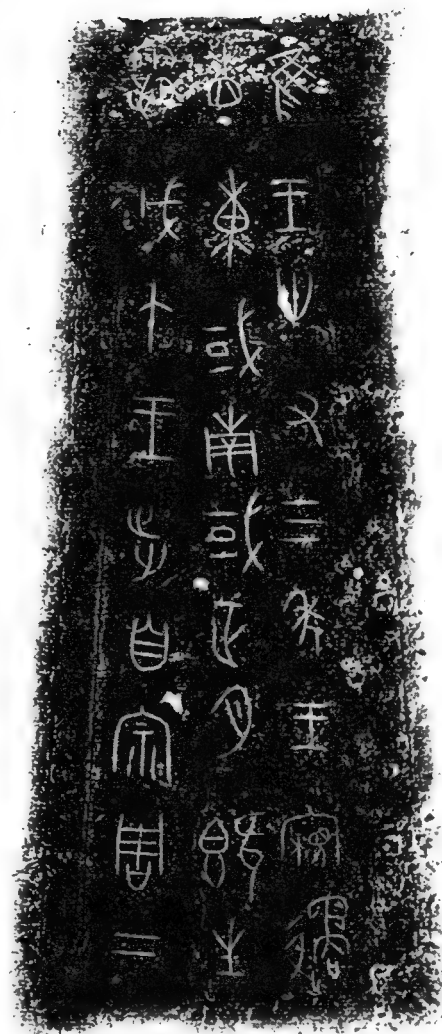 隹王卅又三年王寴遹
省東或南或正月既生
霸戊午王步自宗周二